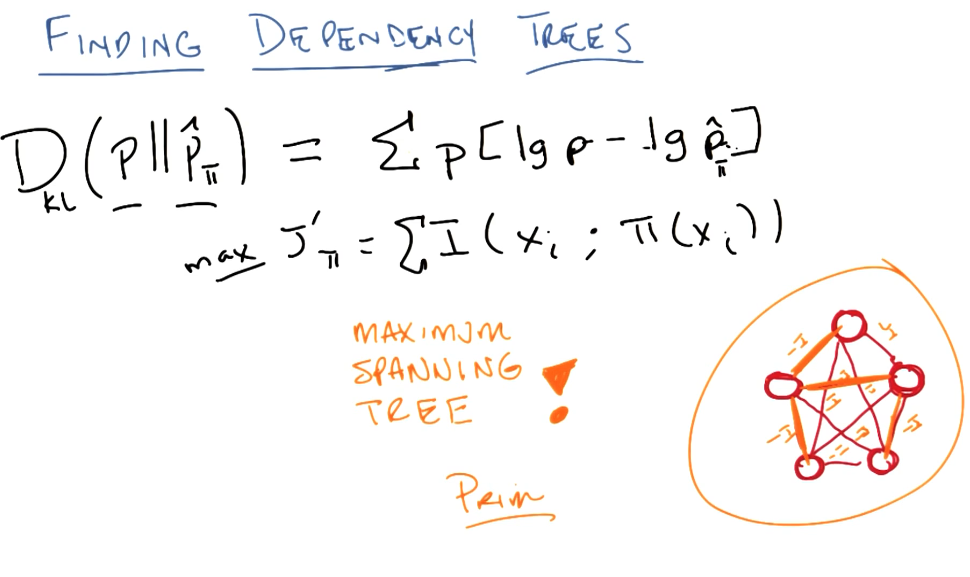 FINDING DEPENDENCY TREES
D_KL(p||p̂_π) = Σ p[lg p - lg p̂_π]
max J'_π = Σ I(x_i ; π(x_i))
MAXIMUM
SPANNING
TREE !
Prim